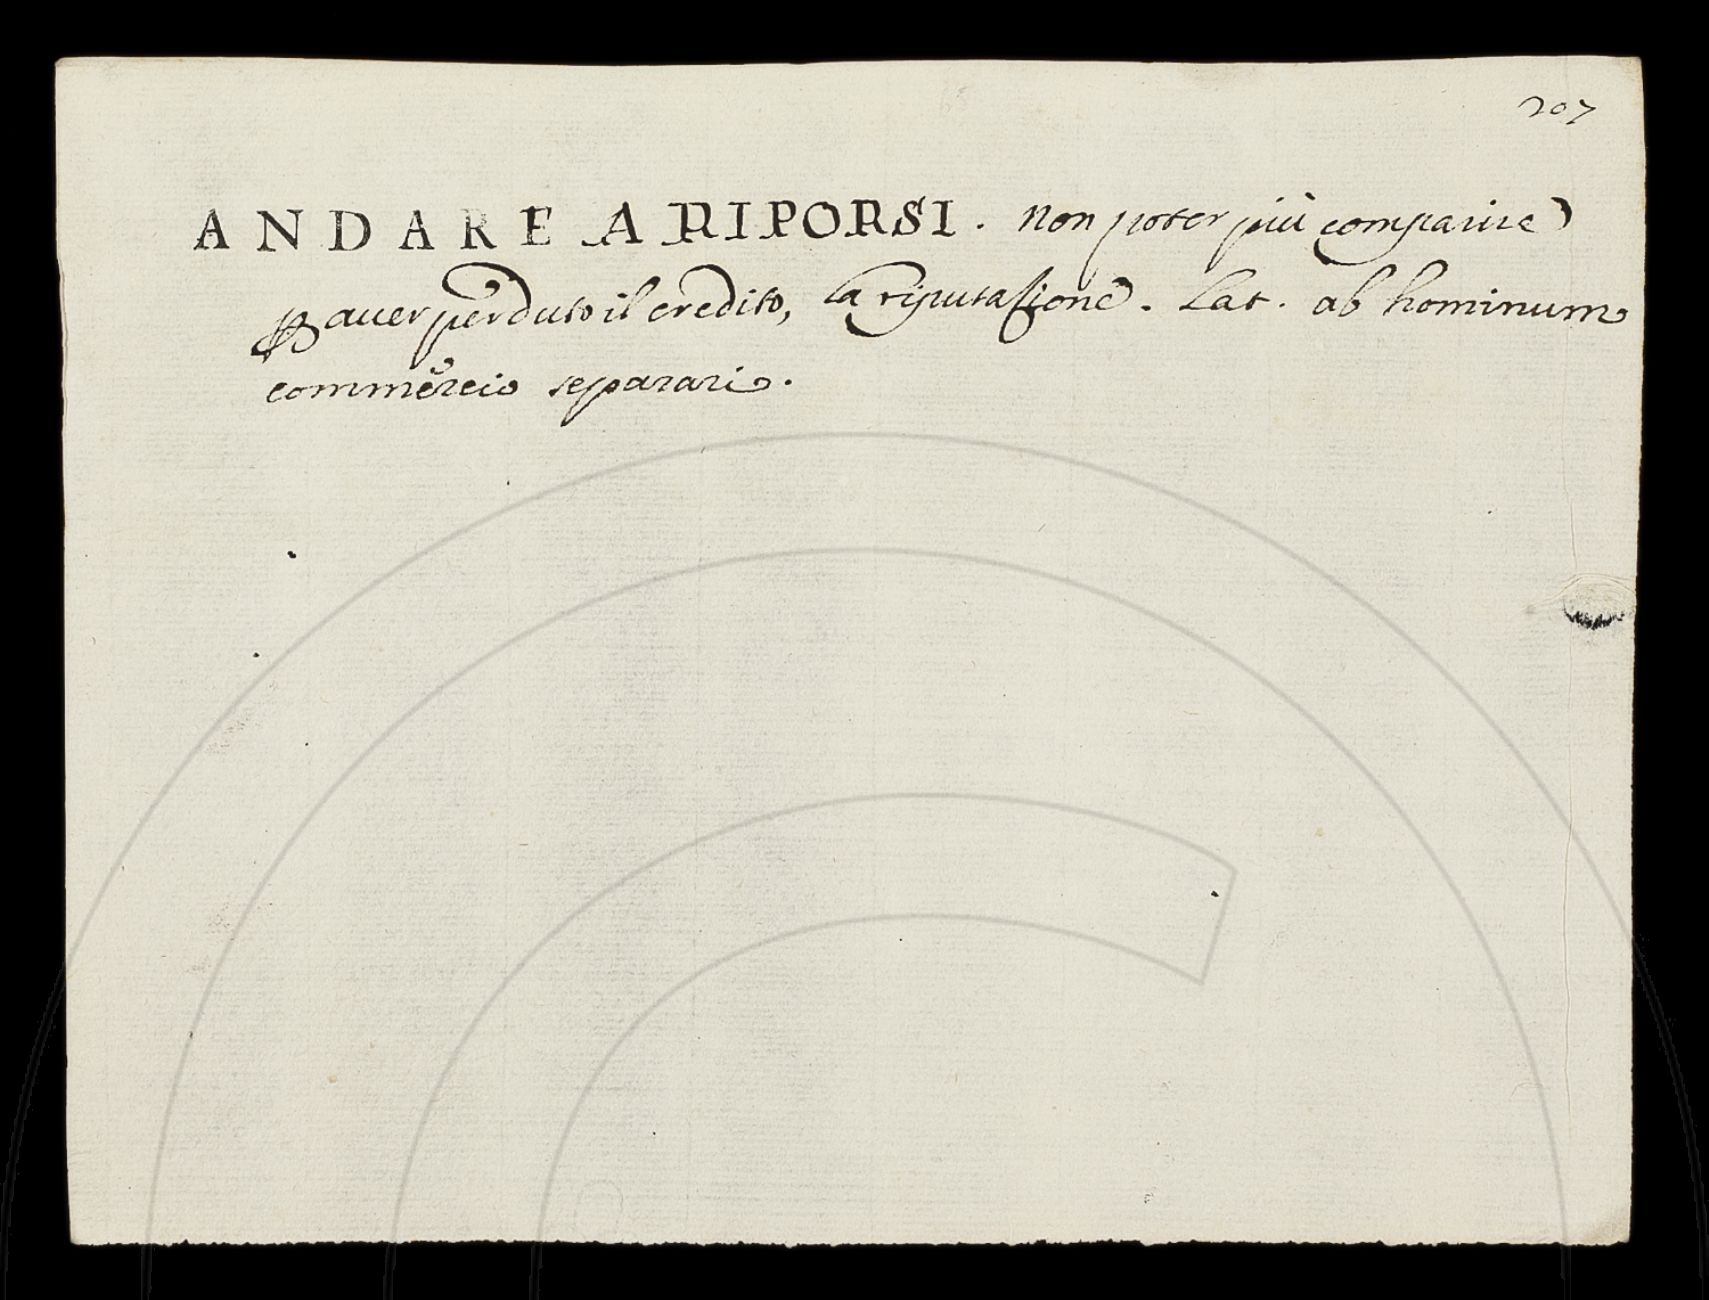 207
ANDARE A RIPORSI. Non poter più comparire
ꝑ aver perduto il credito, la riputazione. Lat. ab hominum
commercio separari.